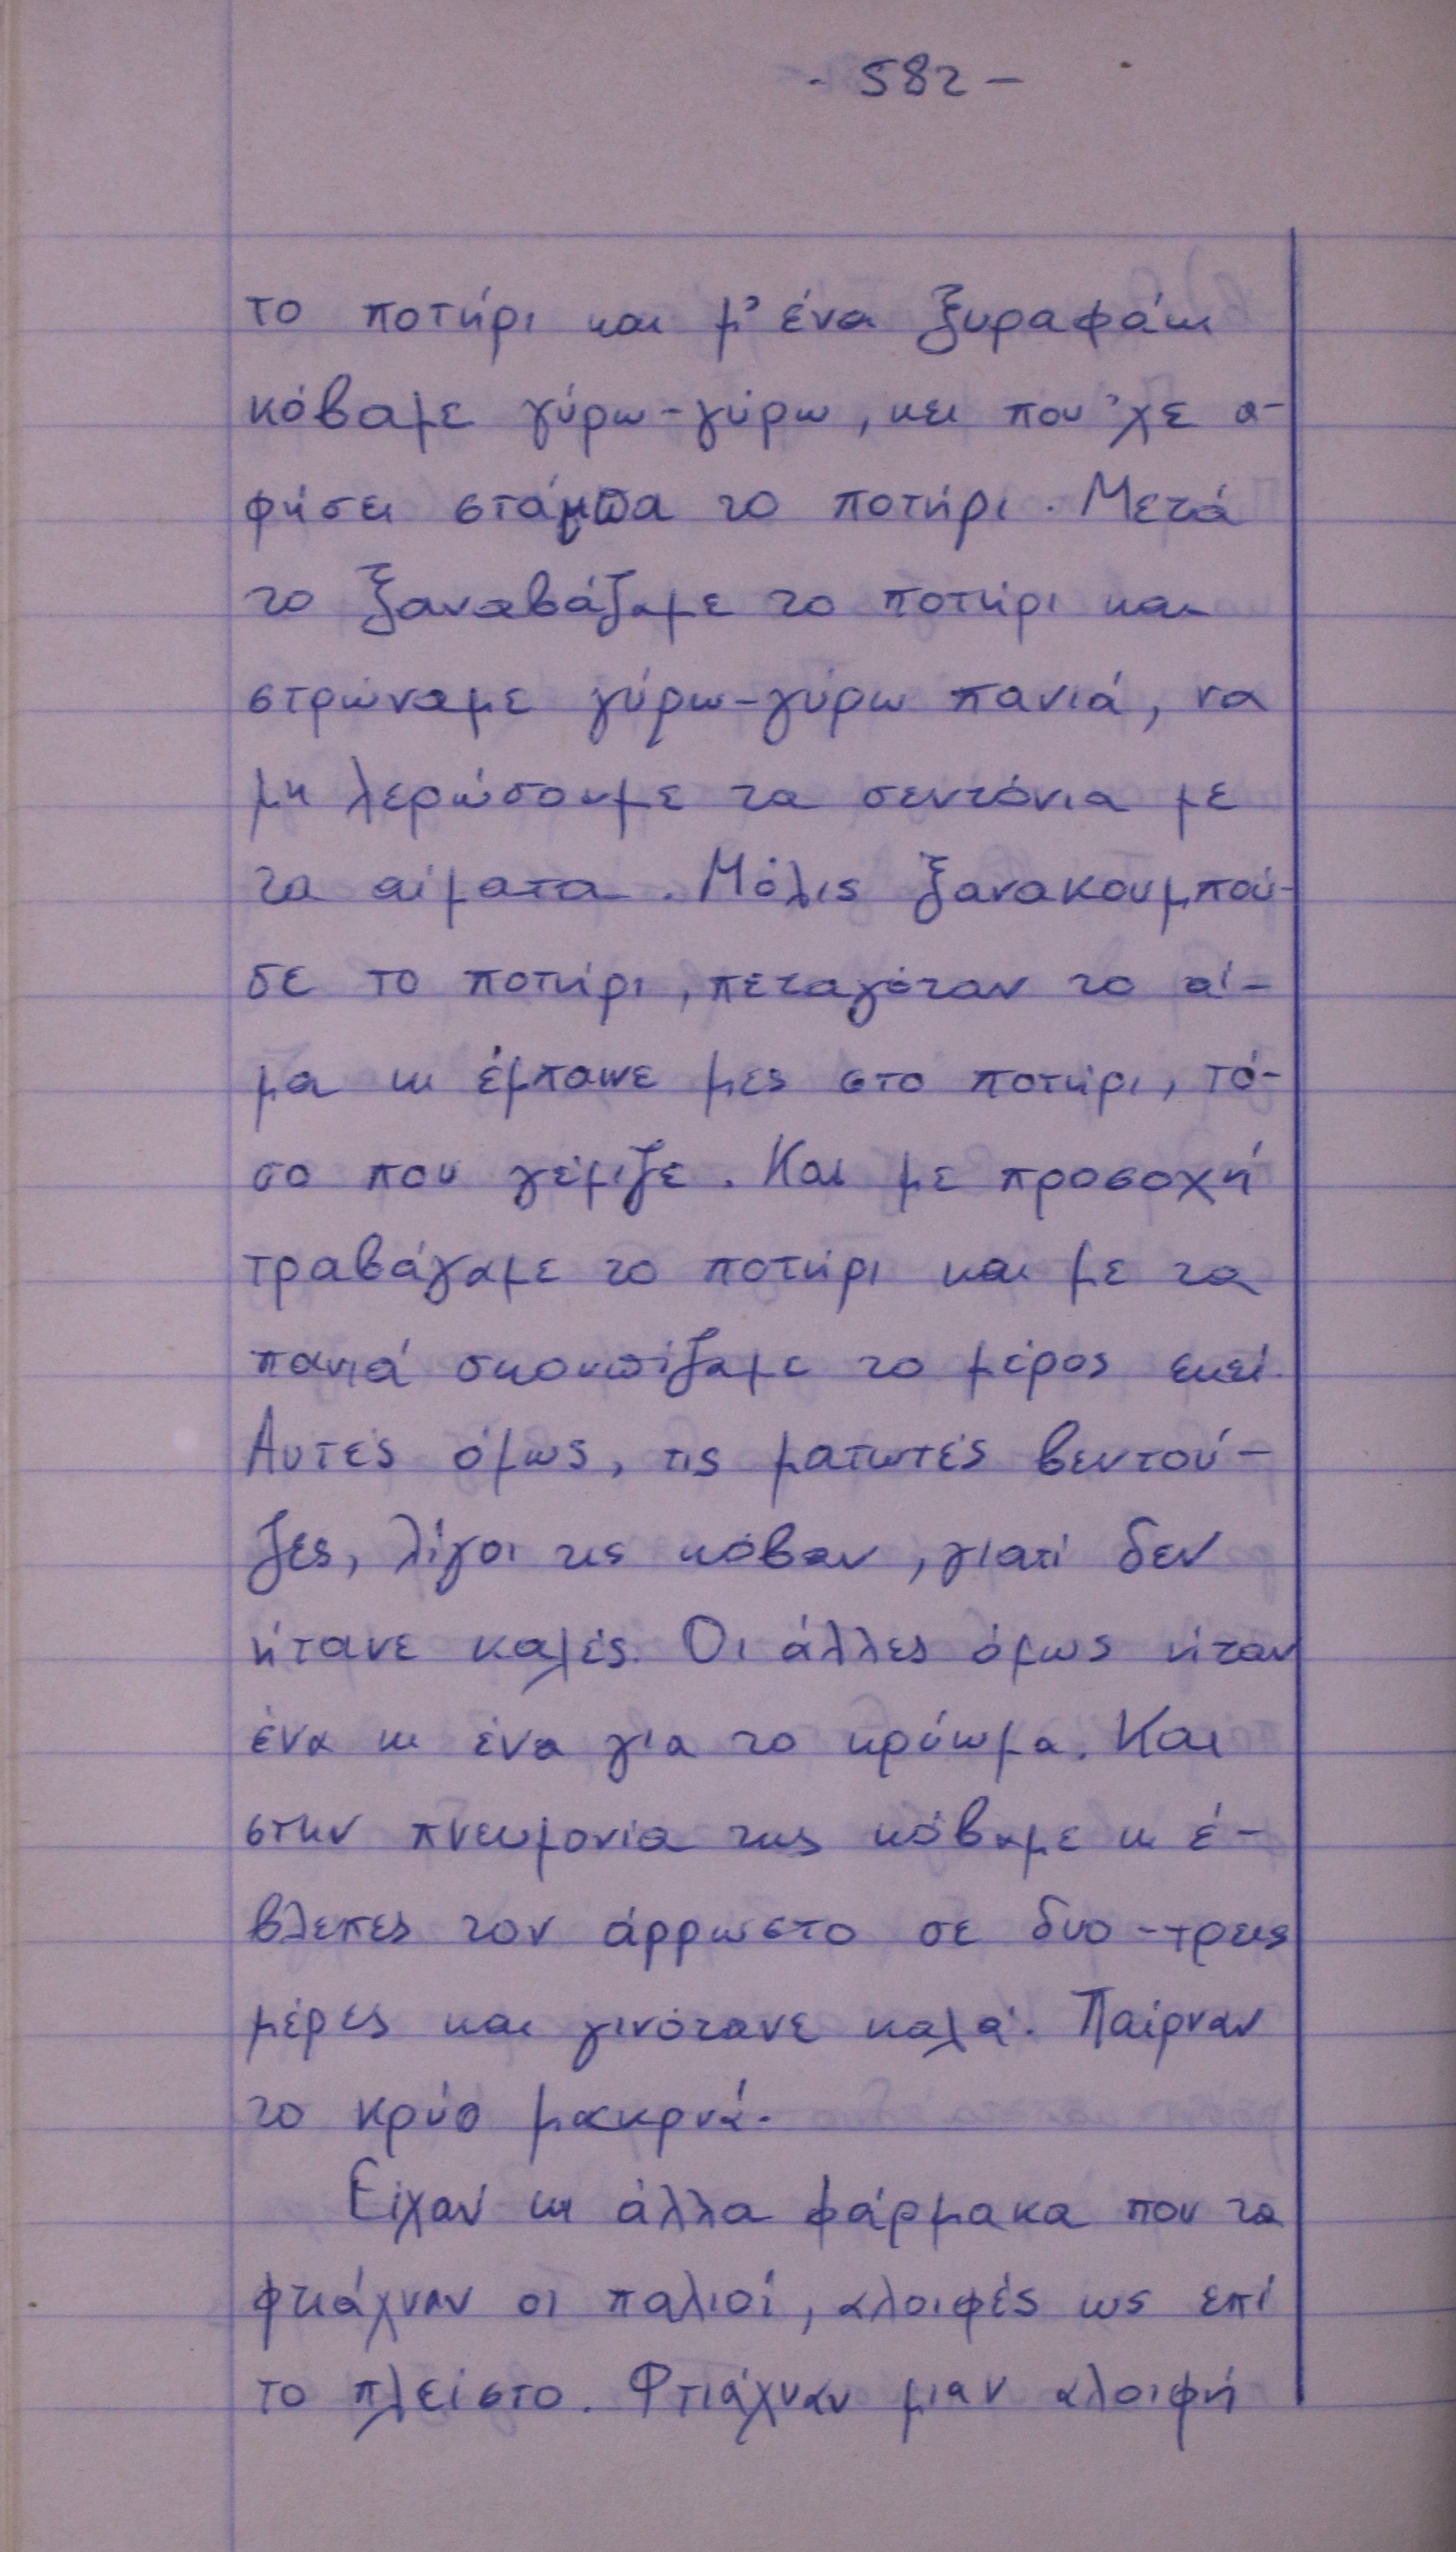 - 582 -
το ποτήρι και μ' ένα ξυραφάκι
κόβαμε γύρω-γύρω, κει που 'χε α-
φήσει στάμπα το ποτήρι. Μετά
το ξαναβάζαμε το ποτήρι και
στρώναμε γύρω-γύρω πανιά, να
μη λερώσουμε τα σεντόνια με
τα αίματα. Μόλις ξανακουμπού-
σε το ποτήρι, πεταγόταν το αί-
μα κι έμπαινε μες στο ποτήρι, τό-
σο που γέμιζε. Και με προσοχή
τραβάγαμε το ποτήρι και με τα
πανιά σκουπίζαμε το μέρος εκεί.
Αυτές όμως, τις ματωτές βεντού-
ζες, λίγοι τις κόβαν, γιατί δεν
ήτανε καλές. Οι άλλες όμως ήταν
ένα κι ένα για το κρύωμα. Και
στην πνευμονία τις κόβαμε κι έ-
βλεπες τον άρρωστο σε δυο-τρεις
μέρες και γινότανε καλά. Παίρναν
το κρύο μακρυά.
Είχαν κι άλλα φάρμακα που τα
φτιάχναν οι παλιοί, αλοιφές ως επί
το πλείστο. Φτιάχναν μιαν αλοιφή